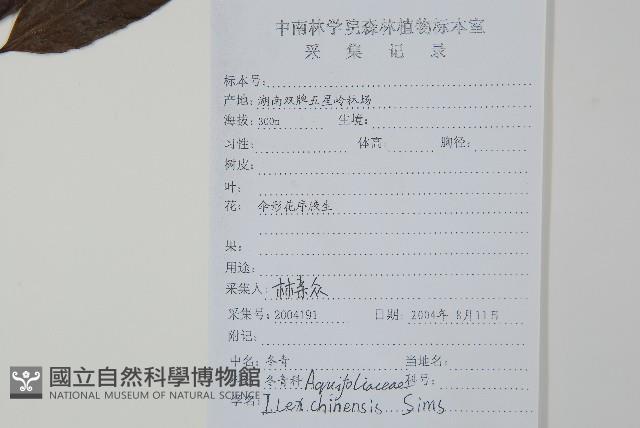 中南林学院森林植物标本室
采集记录
标本号:
产地: 湖南双牌五星岭林场
海拔: 300m 生境:
习性: 体高: 胸径:
树皮:
叶:
花: 伞形花序腋生
果:
用途:
采集人: 林亲众
采集号: 2004191 日期: 2004年 8月11号
附记:
中名: 冬青 当地名:
冬青科 Aquifoliaceae 科号:
学名: Ilex chinensis Sims
國立自然科學博物館
NATIONAL MUSEUM OF NATURAL SCIENCE